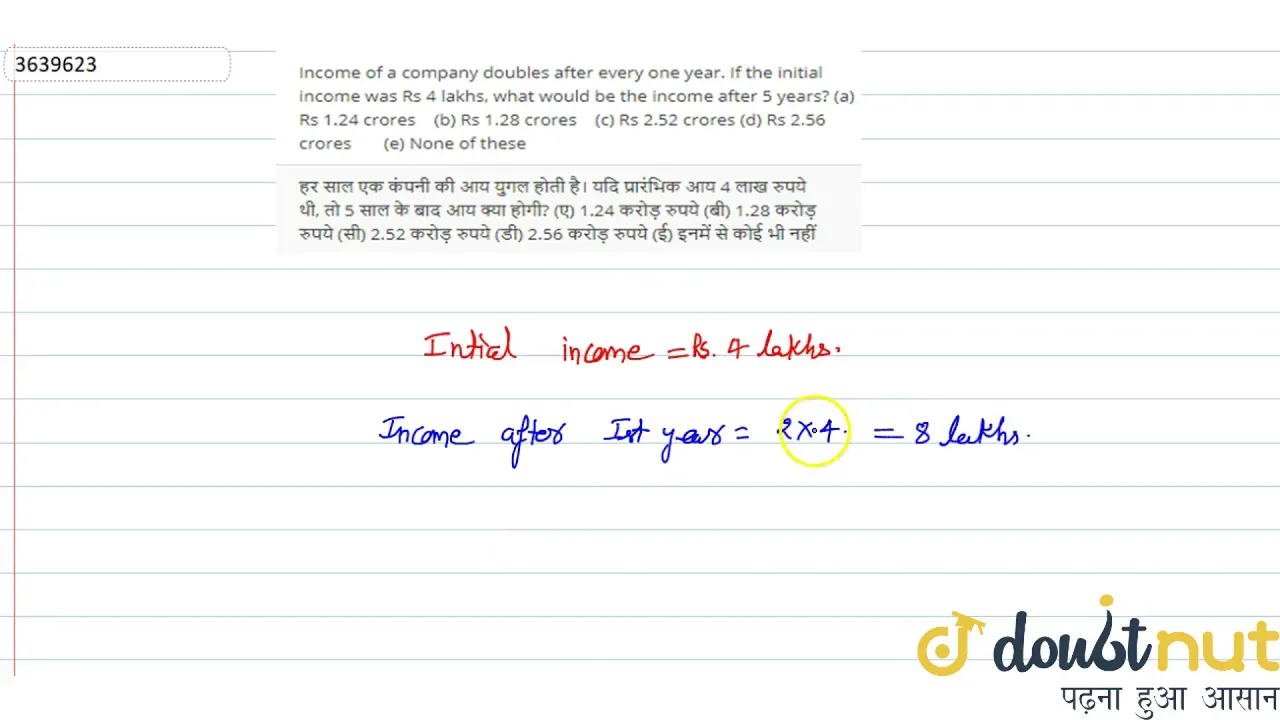 3639623
Income of a company doubles after every one year. If the initial
income was Rs 4 lakhs, what would be the income after 5 years? (a)
Rs 1.24 crores (b) Rs 1.28 crores (c) Rs 2.52 crores (d) Rs 2.56
crores (e) None of these
हर साल एक कंपनी की आय युगल होती है। यदि प्रारंभिक आय 4 लाख रुपये
थी, तो 5 साल के बाद आय क्या होगी? (ए) 1.24 करोड़ रुपये (बी) 1.28 करोड़
रुपये (सी) 2.52 करोड़ रुपये (डी) 2.56 करोड़ रुपये (ई) इनमें से कोई भी नहीं
Intial income = Rs. 4 lakhs.
Income after Ist year = 2×4 = 8 lakhs.
doubtnut
पढ़ना हुआ आसान